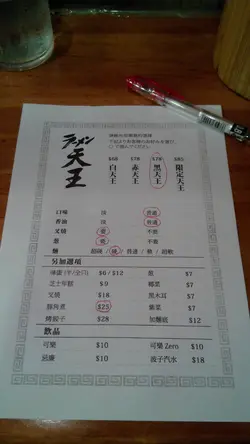 ラーメン
天王
$68 白天王
$78 赤天王
$78 黑天王
$85 限定天王
口味 淡 普通
香油 淡 普通
叉燒 要 不要
蔥 要 不要
麵 超硬 / 硬 / 普通 / 軟 / 超軟
另加選項
$6 / $12
蔥 $7
芝士年糕 $9
椰菜 $7
叉燒 $18
黑木耳 $7
豚角煮 $25
紫菜 $7
烤餃子 $28
加麵底 $12
飲品
可樂 $10
可樂 Zero $10
忌廉 $10
波子汽水 $18